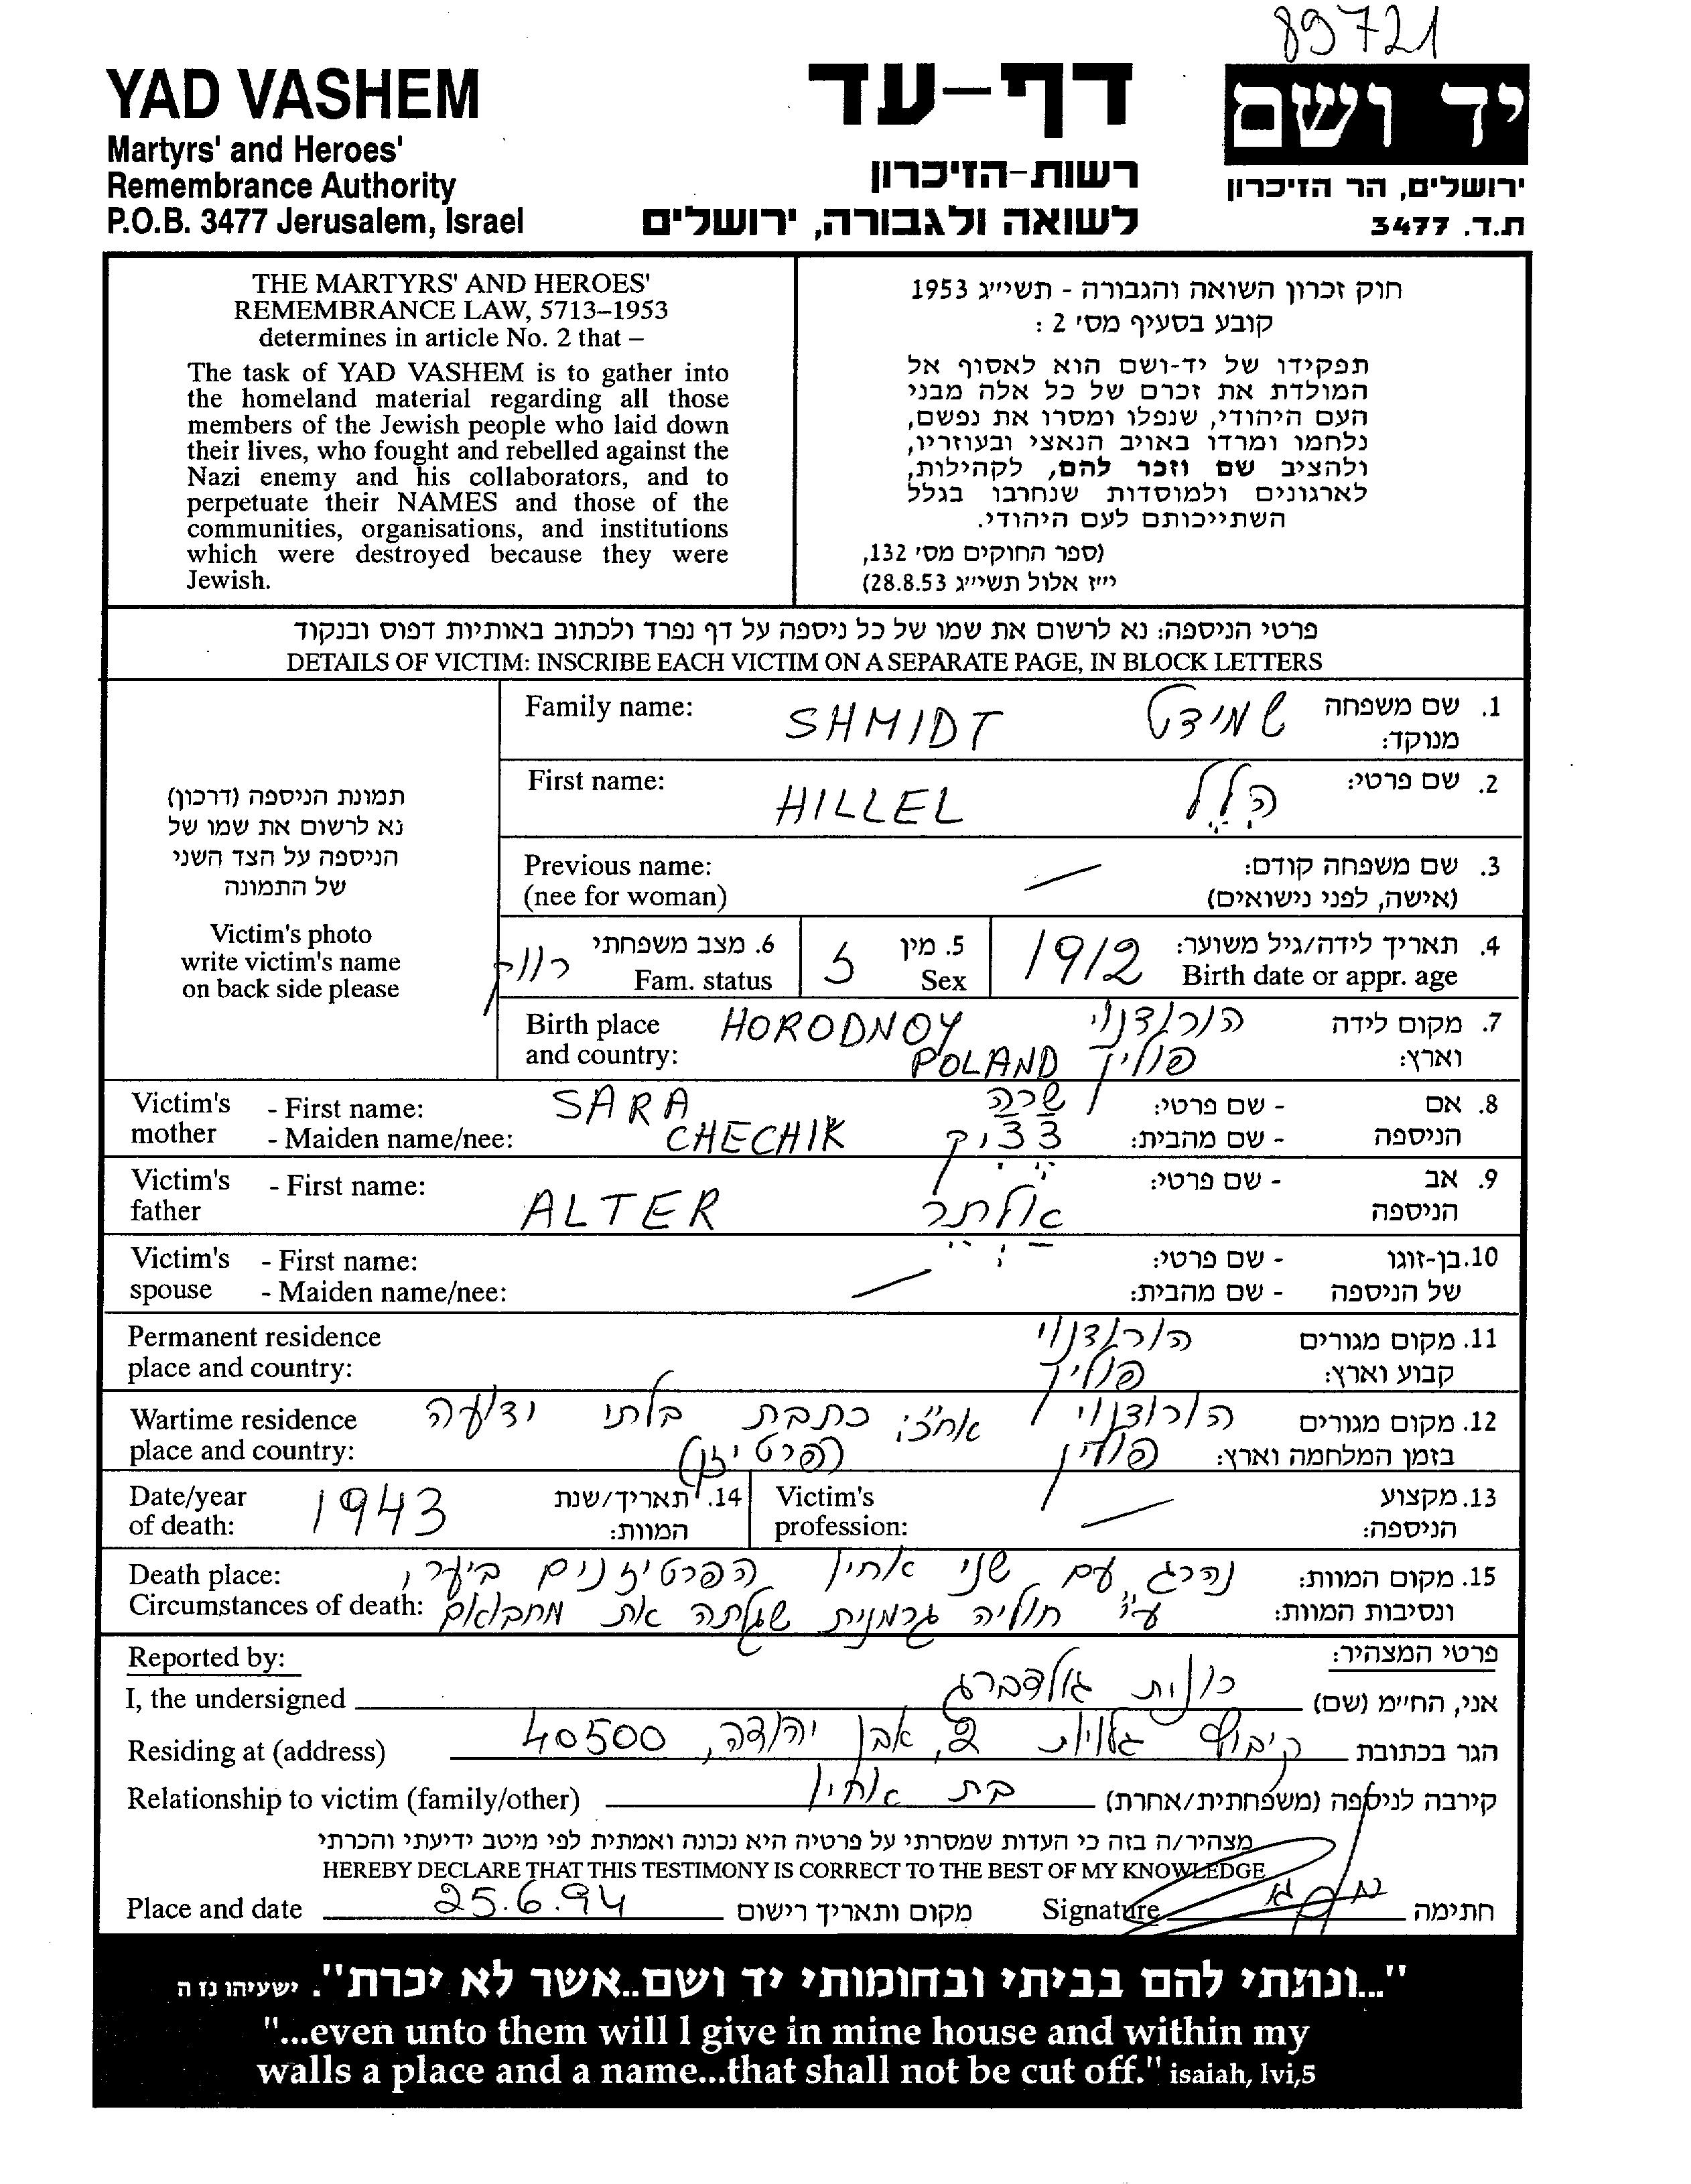 89721
YAD VASHEM
Martyrs' and Heroes'
Remembrance Authority
P.O.B. 3477 Jerusalem, Israel
דף-עד
רשות-הזיכרון
לשואה ולגבורה, ירושלים
יד ושם
ירושלים, הר הזיכרון
ת.ד. 3477
THE MARTYRS' AND HEROES'
REMEMBRANCE LAW, 5713–1953
determines in article No. 2 that –
The task of YAD VASHEM is to gather into
the homeland material regarding all those
members of the Jewish people who laid down
their lives, who fought and rebelled against the
Nazi enemy and his collaborators, and to
perpetuate their NAMES and those of the
communities, organisations, and institutions
which were destroyed because they were
Jewish.
חוק זכרון השואה והגבורה - תשי״ג 1953
קובע בסעיף מס׳ 2 :
תפקידו של יד-ושם הוא לאסוף אל
המולדת את זכרם של כל אלה מבני
העם היהודי, שנפלו ומסרו את נפשם,
נלחמו ומרדו באויב הנאצי ובעוזריו,
ולהציב שם וזכר להם, לקהילות,
לארגונים ולמוסדות שנחרבו בגלל
השתייכותם לעם היהודי.
(ספר החוקים מס׳ 132,
י״ז אלול תשי״ג 28.8.53)
פרטי הניספה: נא לרשום את שמו של כל ניספה על דף נפרד ולכתוב באותיות דפוס ובנקוד
DETAILS OF VICTIM: INSCRIBE EACH VICTIM ON A SEPARATE PAGE, IN BLOCK LETTERS
תמונת הניספה (דרכון)
נא לרשום את שמו של
הניספה על הצד השני
של התמונה
Victim's photo
write victim's name
on back side please
Family name: SHMIDT שמידט 1. שם משפחה
מנוקד:
First name: HILLEL הלל 2. שם פרטי:
Previous name: — 3. שם משפחה קודם:
(nee for woman) (אישה, לפני נישואים)
רווק 6. מצב משפחתי ז 5. מין 1912 4. תאריך לידה/גיל משוער:
Fam. status Sex Birth date or appr. age
Birth place HORODNOY הורודנוי 7. מקום לידה
and country: POLAND פולין וארץ:
Victim's - First name: SARA שרה - שם פרטי: 8. אם
mother - Maiden name/nee: CHECHIK צ'צ'יק - שם מהבית: הניספה
Victim's - First name: ALTER אלתר - שם פרטי: 9. אב
father הניספה
Victim's - First name: — - שם פרטי: 10. בן-זוגו
spouse - Maiden name/nee: - שם מהבית: של הניספה
Permanent residence הורודנוי 11. מקום מגורים
place and country: פולין קבוע וארץ:
Wartime residence הורודנוי אח"כ: כתבת בלתי ידועה 12. מקום מגורים
place and country: פולין (פרטיזן) בזמן המלחמה וארץ:
Date/year 1943 14. תאריך/שנת Victim's — 13. מקצוע
of death: המוות: profession: הניספה:
Death place: נהרג עם שני אחיו הפרטיזנים ביער, 15. מקום המוות:
Circumstances of death: ע"י חוליה גרמנית שגלתה את מחבואם ונסיבות המוות:
Reported by: פרטי המצהיר:
I, the undersigned רונית גולדברג אני, החי״מ (שם)
Residing at (address) קיבוץ גלויות 2, אבן יהודה, 40500 הגר בכתובת
Relationship to victim (family/other) בת אחיו קירבה לניספה (משפחתית/אחרת)
מצהיר/ה בזה כי העדות שמסרתי על פרטיה היא נכונה ואמתית לפי מיטב ידיעתי והכרתי
HEREBY DECLARE THAT THIS TESTIMONY IS CORRECT TO THE BEST OF MY KNOWLEDGE
Place and date 25.6.94 מקום ותאריך רישום Signature חתימה
"...ונתתי להם בביתי ובחומותי יד ושם..אשר לא יכרת". ישעיהו נז ה
"...even unto them will I give in mine house and within my
walls a place and a name...that shall not be cut off." isaiah, lvi,5